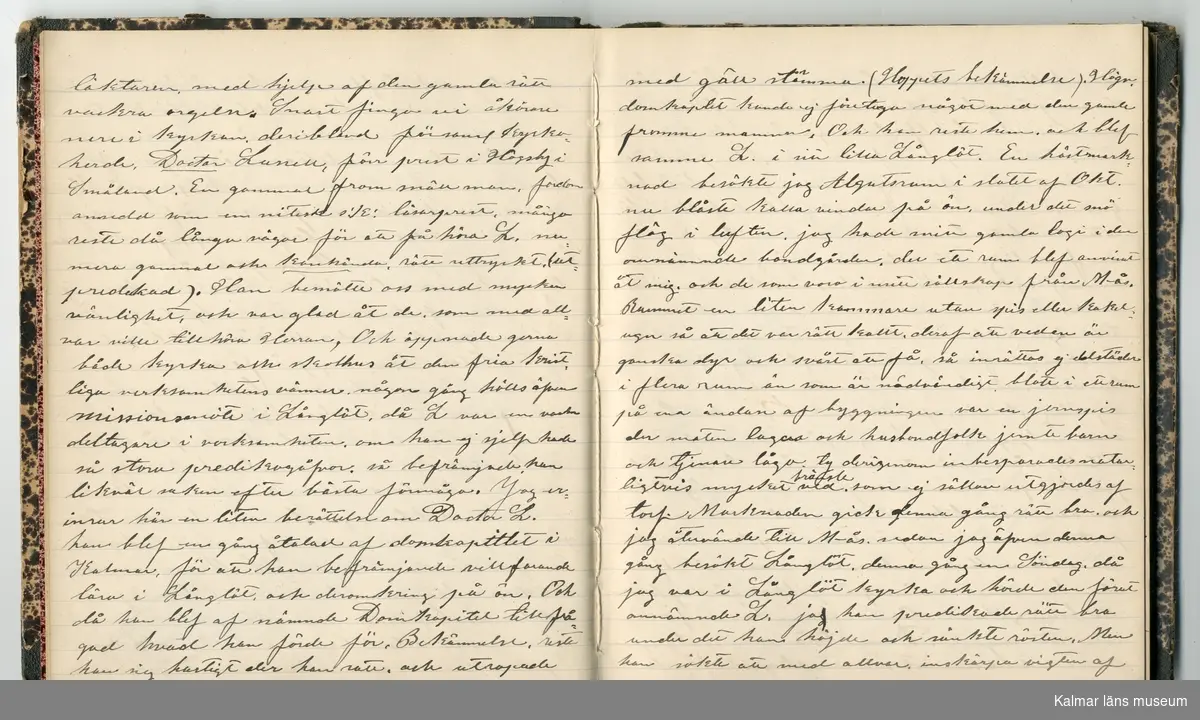 läktaren, med hjelp af den gamla rätt
vackra orgeln. Snart fingo vi åhörare
nere i kyrkan, deribland församl kyrko-
herde, Doctor Lunell, förr prest i Högsby i
Småland. En gammal from snäll man, fordom
ansedd som en nitisk s:k: läsarprest, många
reste då långa vägar för att få höra L. nu-
mera gammal och kankända, rätt uttryckt, (ut-
predikad). Han bemötte oss med mycken
vänlighet, och var glad åt de, som med all-
var ville tillhöra Herran, Och öppnade gerna
både kyrka och skolhus åt den fria krist-
liga verksamhetens vänner. någon gång hölls äfven
missionsmöte i Långlöt, då L var en
deltagare i verksamheten. om han ej sjelf hade
så stora predikogåfvor. så befrämjade han
likväl saken efter bästa förmåga. Jag er-
inrar här en liten berättelse om Doctor L.
han blef en gång åtalad af domkapitlet i
Kalmar, för att han befrämjande villfarande
lära i Långlöt, och deromkring på ön. Och
då han blef af nämnde Domkapitel tillfrå-
gad hvad han förde för. Bekännelse, reste
han sig hastigt der han satt. och utropade
med gäll stämma. (Hoppets bekännelse). Högv.
domkapitlet kunde ej företaga något med den gamle
fromme mannen, Och han reste hem. och blef
samme L. i sitt lilla Långlöt. En höstmark-
nad besökte jag Algutsrum i slutet af Okt.
nu blåste kalla vindar på ön, under det snö
flög i luften. jag hade mitt gamla logi i den
omnämnde bondgården. der ett rum blef anvisat
åt mig. och de som voro i mitt sällskap från M-ås.
Rummet en liten kammare utan spis eller kakel-
ugn så att det var rätt kallt. deraf att veden är
ganska dyr och svår att få, så inrättas ej eldstäder
i flera rum än som är nödvändigt blott i ett rum
på ena ändan af byggningen var en jernspis
der maten lagas och husbondfolk jemte barn
och tjenare låga. ty derigenom inbesparades natur-
ligtvis mycket ved. bränsle som ej sällan utgjordes af
torf. Marknaden gick denna gång rätt bra. och
jag återvände till M-ås. sedan jag äfven denna
gång besökt Långlöt. denna gång en Söndag. då
jag var i Långlöt kyrka och hörde den förut
omnämnde L. jag han predikade rätt bra
under det han höjde och sänkte rösten. Men
han sökte att med allvar. inskärpa vigten af
Kalmar läns museum